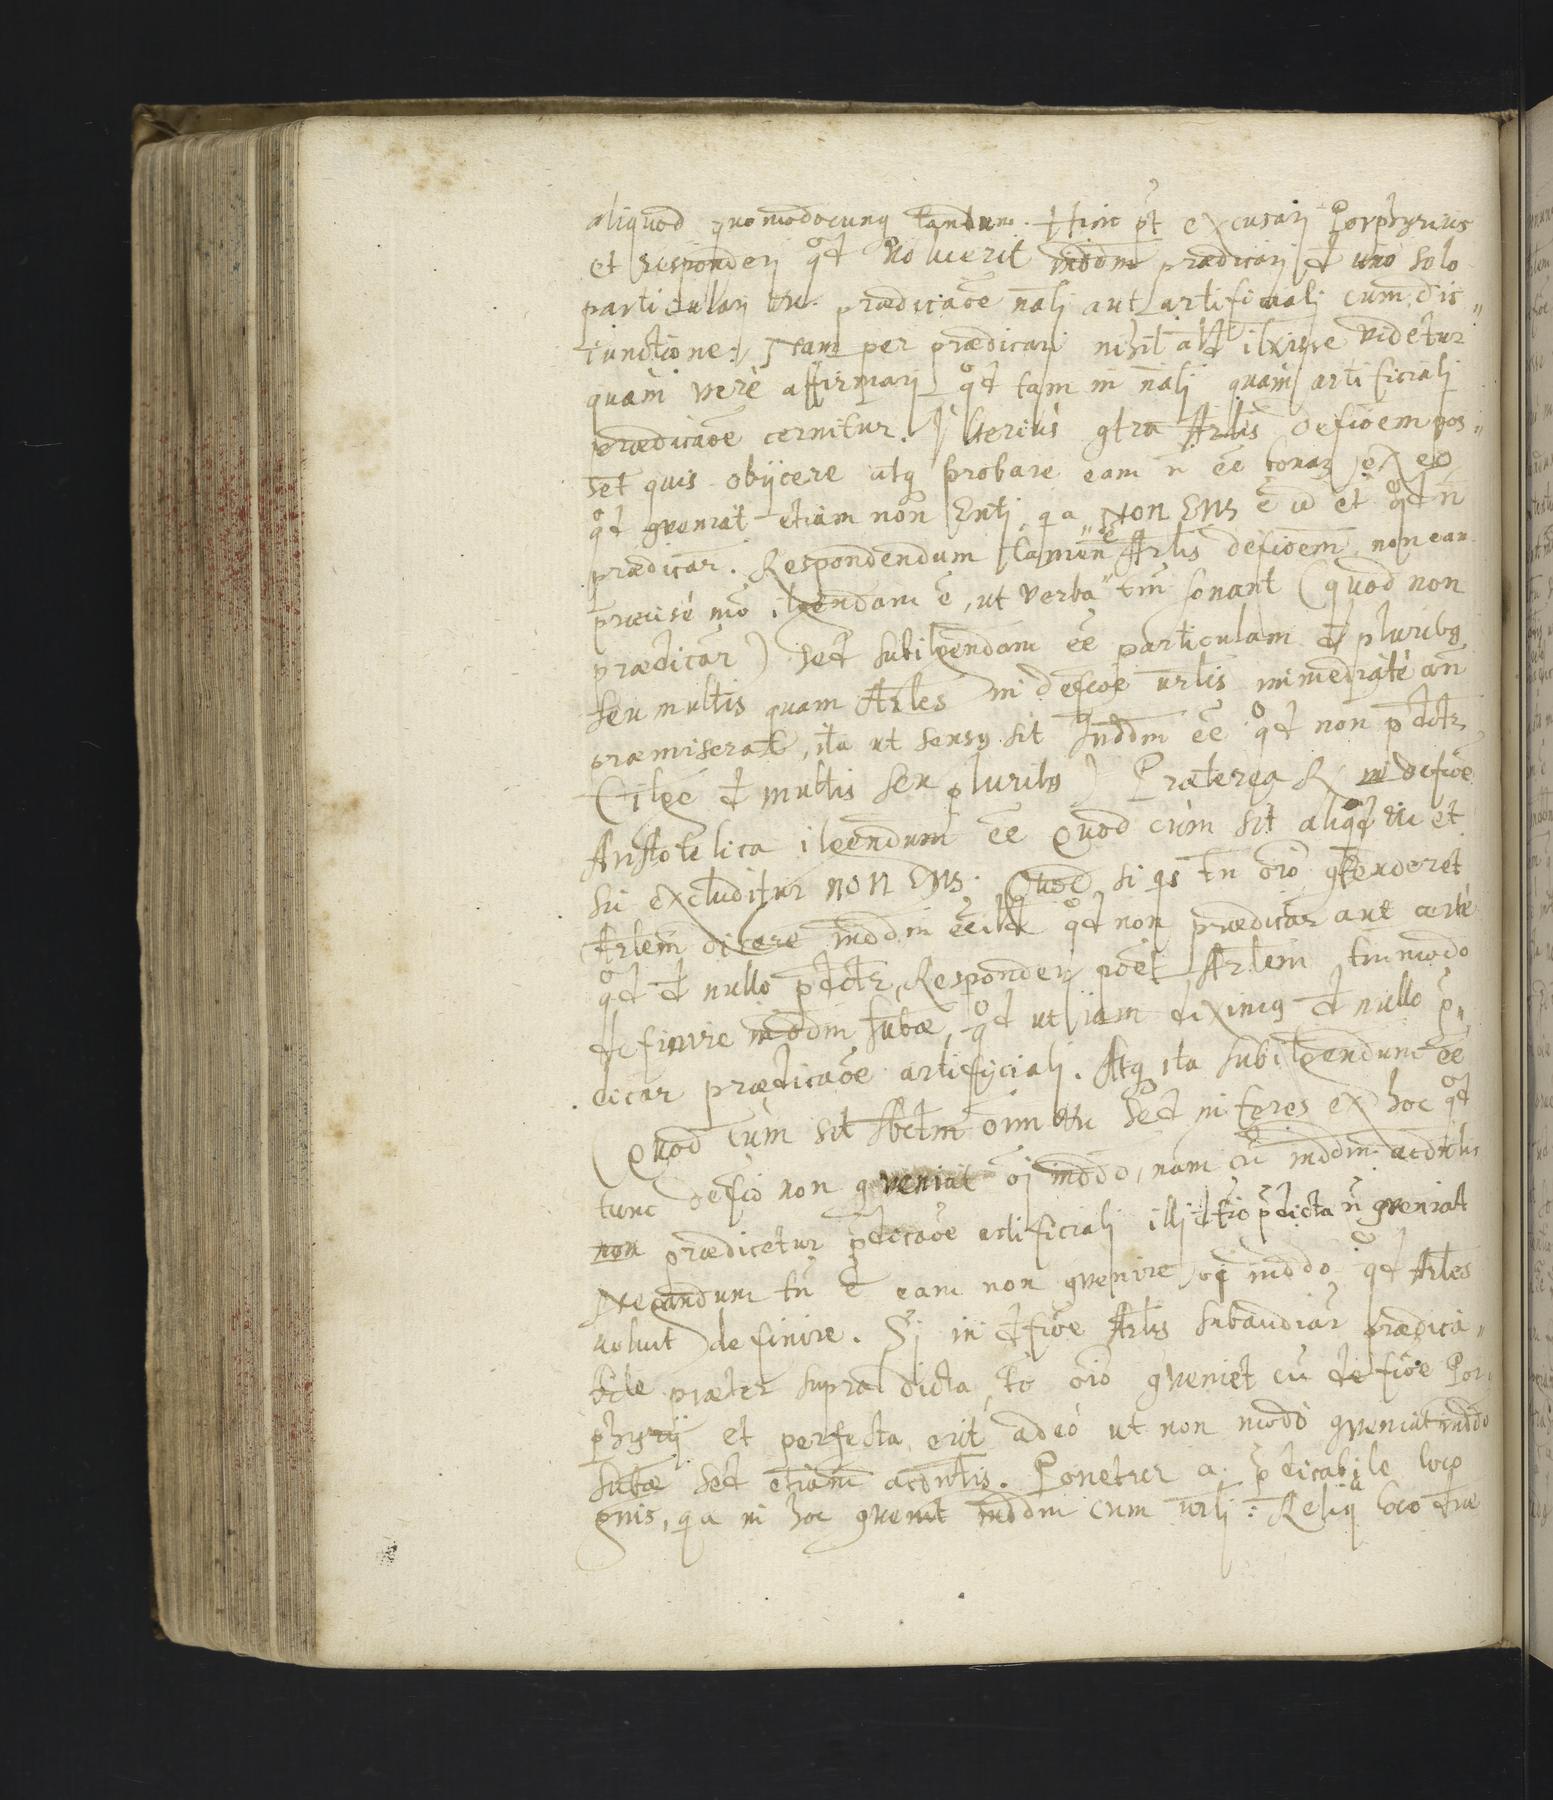 aliquod quomodocunq tandem. Hinc pt excusari Porphyrius
et responderi qd voluerit inddm prædicari d uno solo
particulari tm prædicaõe nãli aut artificiali cum dis„
iunctione: Nam per prædicari nihil aliud itxisse videtur
quàm verè affirmari qd tam in nãli quàm artificiali
prædicaõe cernitur. Ulterius gtra Arlis defioem pos„
set quis obijcere atq probare eam ñ eẽ bonaz ex eo
qd gveniat etiam non Enti, qia NON ENS ẽ id et qd ñ
prædicar̃. Respondendum tamen Arlis defioem non eam
præcisè mõ itxendam ẽ, ut verba tm̃ sonant (quod non
prædicar̃) sed subitxendam eẽ particulam d pluribq
seu multis quam Arles in defioe urlis immediatè añ
præmiserat, ita ut sensq sit Inddm eẽ qd non pdctr
d multis seu pluribq) Præterea in defioe
Aristotelica itxendum eẽ Quod cùm sit aliqd et
sic excluditur NON ENS. Quod si qs tñ oĩo gtenderet
Arlem dicere inddm eẽ id qd non prædicar aut certè
qd d nullo pdctr, Responderi poẽt Arlem tm̃modo
definire inddm subæ, qd ut iam diximq d nullo p„
dicar prædicaõe artificiali. Atq ita subitxendum eẽ
(Quod cùm sit sbctm oĩm Sed inferes ex hoc qd
tunc defio non gveniat oĩ inddo, nam cũ inddm acdntlis
non prædicetur pdicaõe artificiali illi dfio pdicta ñ gveniat
Negandum tñ ẽ eam non gvenire oĩ inddo qd Arles
voluit definire. Si in dfioe Arlis subaudiar̃ prædica„
bile præter supra dicta, to oĩo gveniet cũ defioe Por„
phyrij et perfecta erit adeò ut non modò gveniat inddo
Subæ sed etiam acdntlis. Ponetur a. pdicabile loco
gnis, qia in hoc gvenit inddm cum urli: Reliq loco driæ